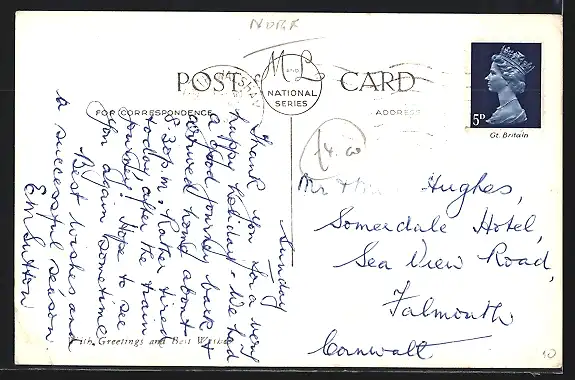 NORA
POST CARD
M AND L
NATIONAL
SERIES
FOR CORRESPONDENCE
ADDRESS
5D
Gt. Britain
Sunday
Thank you for a very
happy holiday. We had
a good journey back &
arrived home about
8.30 p.m; Rather tired
today after the train
journey. Hope to see
you again sometime
Best wishes and
a successful season.
E M Sutton
Mr Hughes,
Somerdale Hotel,
Sea View Road,
Falmouth,
Cornwall
With Greetings and Best Wishes
10